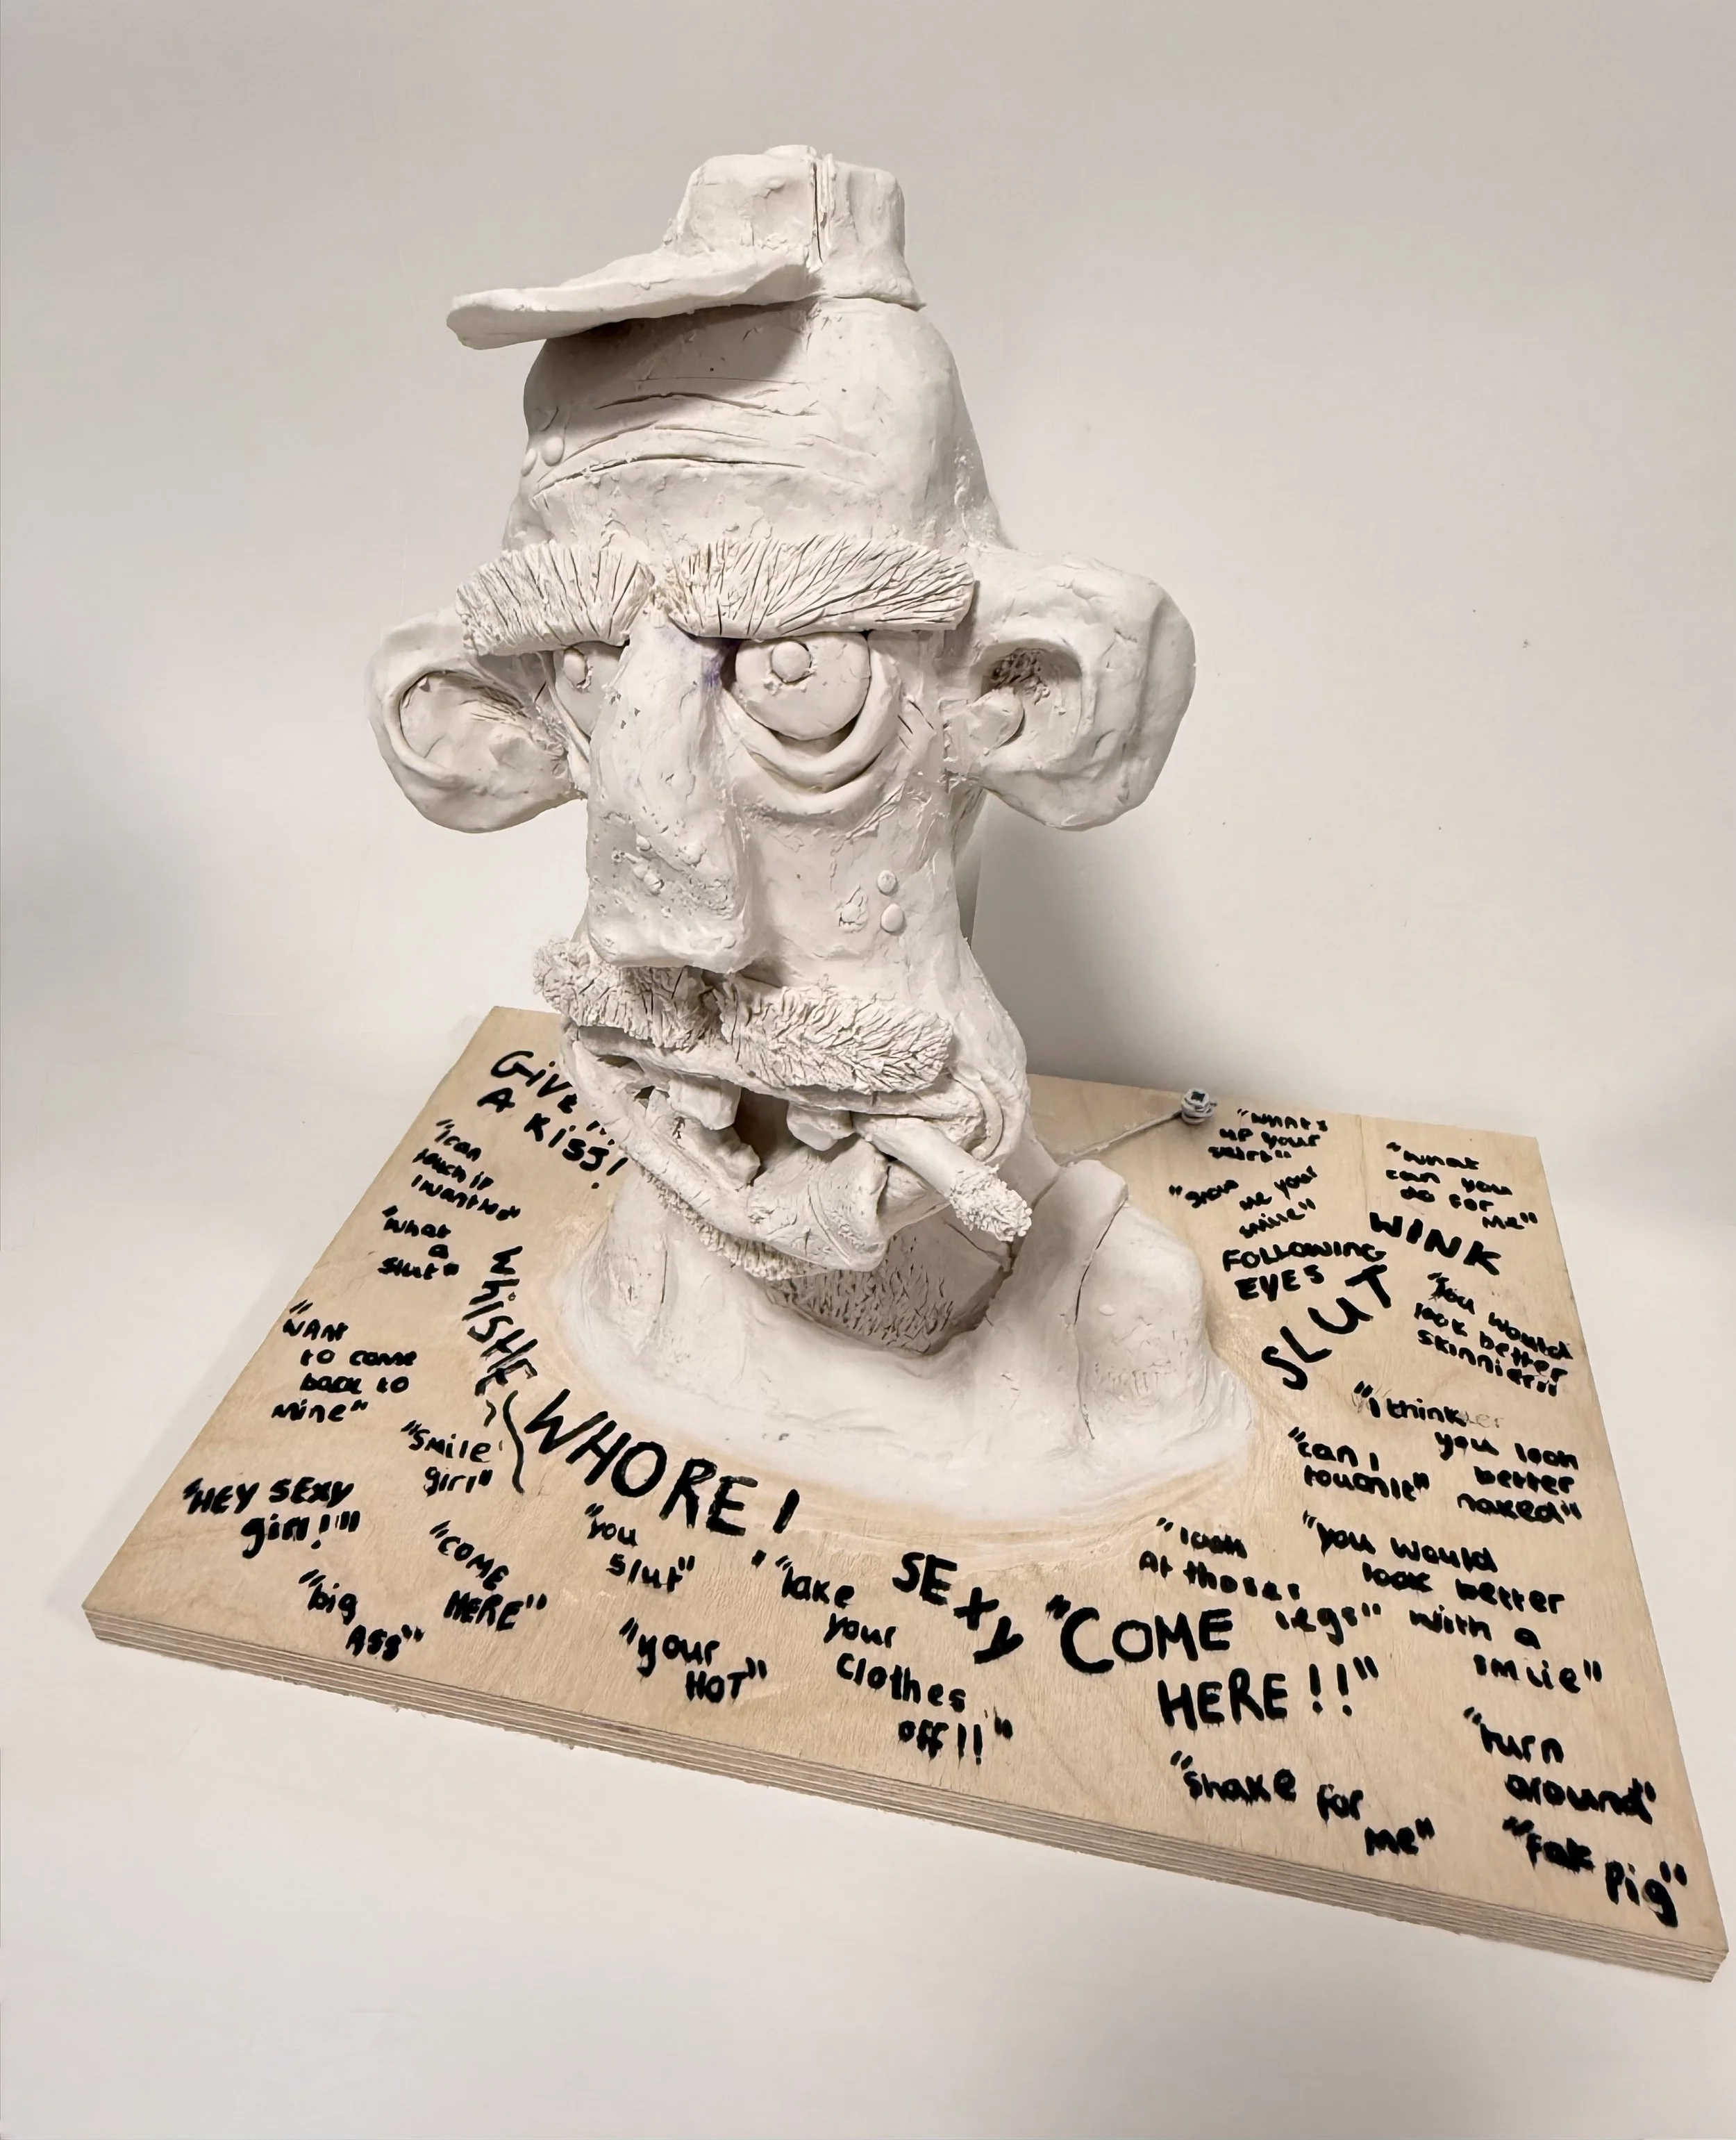 GiVE
A KiSS!
"I can
touch it
I wanted"
"what
a
slut"
WhISTlE
"WANT
to come
back to
Mine"
"Smile
girl"
"HEY SEXY
girl!"
"COME
HERE"
"big
ASS"
WHORE!
"you
slut"
"your
HOT"
"Take
your
clothes
off!!"
SEXY
"COME
HERE!!"
"look
At those
legs"
"shake for
me"
up your
skirt"
"show me your
"what
can you
do for
me"
WINK
FOLLOWING
EYES
SLUT
"You would
look better
skinnier"
"I think
you look
better
naked"
"can I
touch it"
"you would
look better
with a
smile"
"turn
around"
"Fat
pig"